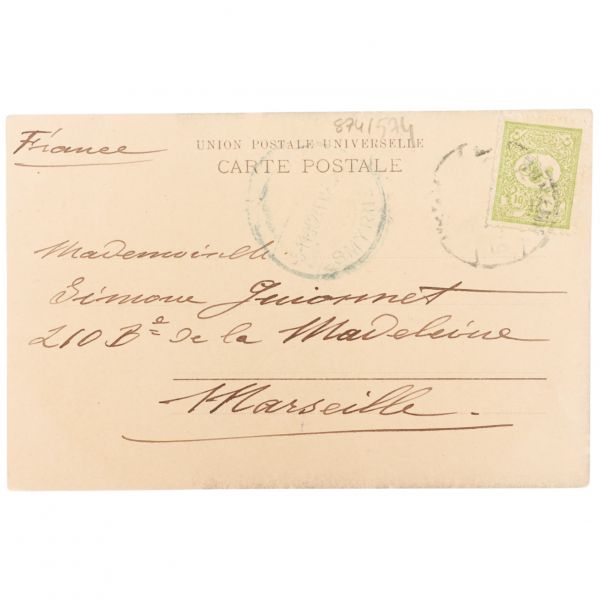 874/574
France
UNION POSTALE UNIVERSELLE
CARTE POSTALE
Mademoiselle
Simone Guionnet
210 Bd de la Madeleine
Marseille.
10